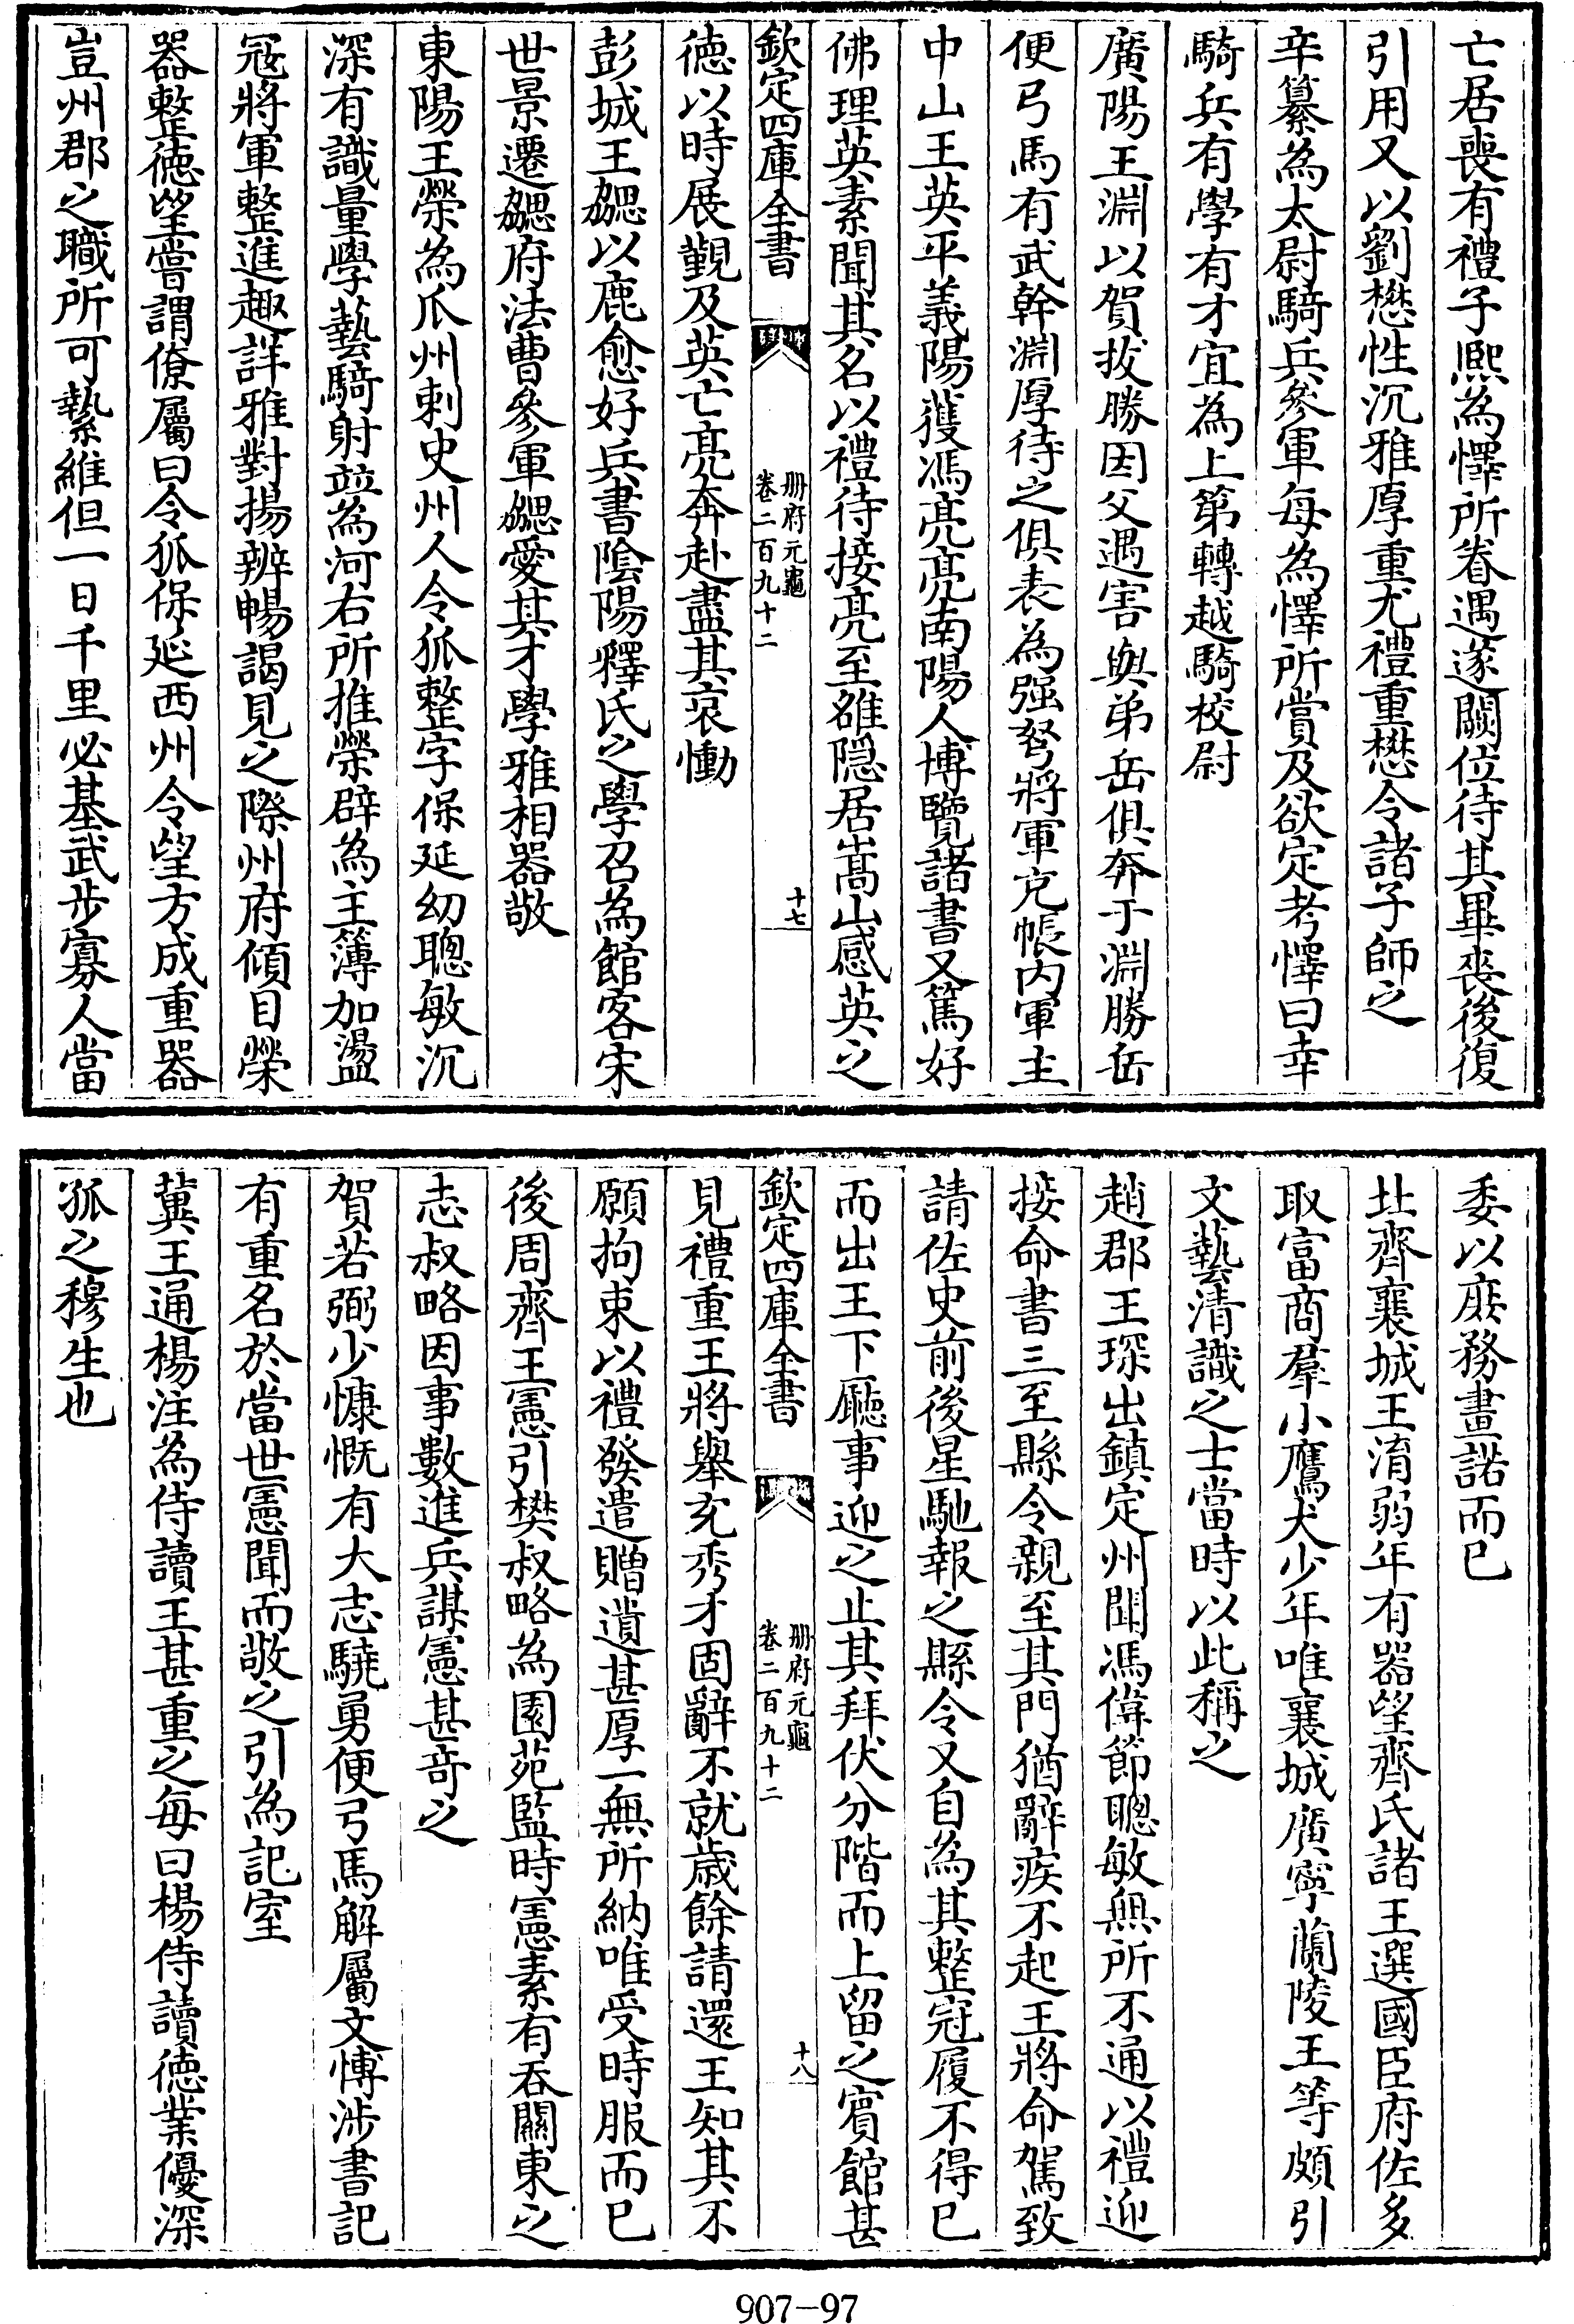 亡居喪有禮子熙為懌所眷遇遂闕位待其畢喪後復
引用又以劉懋性沉雅厚重尤禮重懋令諸子師之
辛纂為太尉騎兵參軍每為懌所賞及欲定考懌曰辛
騎兵有學有才宜為上第轉越騎校尉
廣陽王淵以賀拔勝因父遇害與弟岳俱奔于淵勝岳
便弓馬有武幹淵厚待之俱表為强弩將軍充帳內軍主
中山王英平義陽獲馮亮亮南陽人博覽諸書又篤好
佛理英素聞其名以禮待接亮至雒隠居嵩山感英之
欽定四庫全書
册府元龜
卷二百九十二
十七
徳以時展覲及英亡亮奔赴盡其哀慟
彭城王勰以鹿悆好兵書陰陽釋氏之學召為館客宋
世景遷勰府法曹參軍勰愛其才學雅相器敬
東陽王榮為瓜州刺史州人令狐整字保延幼聰敏沉
深有識量學藝騎射竝為河右所推榮辟為主簿加盪
冦將軍整進趣詳雅對揚辨暢謁見之際州府傾目榮
器整徳望嘗謂僚屬曰令狐保延西州令望方成重器
豈州郡之職所可縶維但一日千里必基武步寡人當
委以庶務畫諾而已
北齊襄城王淯弱年有器望齊氏諸王選國臣府佐多
取富商羣小鷹犬少年唯襄城廣寧蘭陵王等頗引
文藝清識之士當時以此稱之
趙郡王琛出鎮定州聞馮偉節聰敏無所不通以禮迎
接命書三至縣令親至其門猶辭疾不起王將命駕致
請佐史前後星馳報之縣令又自為其整冠履不得已
而出王下廳事迎之止其拜伏分階而上留之賓館甚
欽定四庫全書
册府元龜
卷二百九十二
十八
見禮重王將舉充秀才固辭不就歲餘請還王知其不
願拘束以禮發遣贈遺甚厚一無所納唯受時服而已
後周齊王憲引樊叔略為園苑監時憲素有吞關東之
志叔略因事數進兵謀憲甚竒之
賀若弼少慷慨有大志驍勇便弓馬解屬文博涉書記
有重名於當世憲聞而敬之引為記室
冀王通楊注為侍讀王甚重之每曰楊侍讀徳業優深
孤之穆生也
907-97